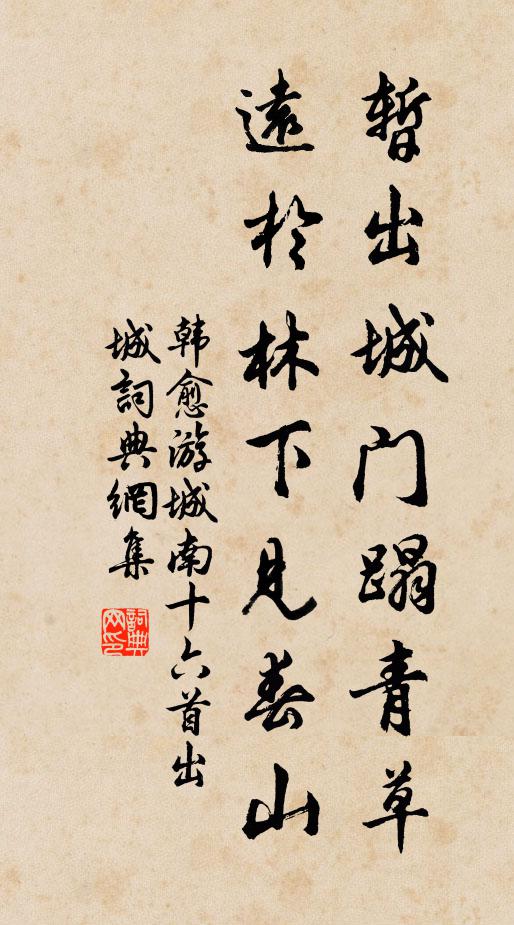 暫出城门蹋青草
遠於林下見春山
韩愈游城南十六首出
城詞典網集
詞典网印